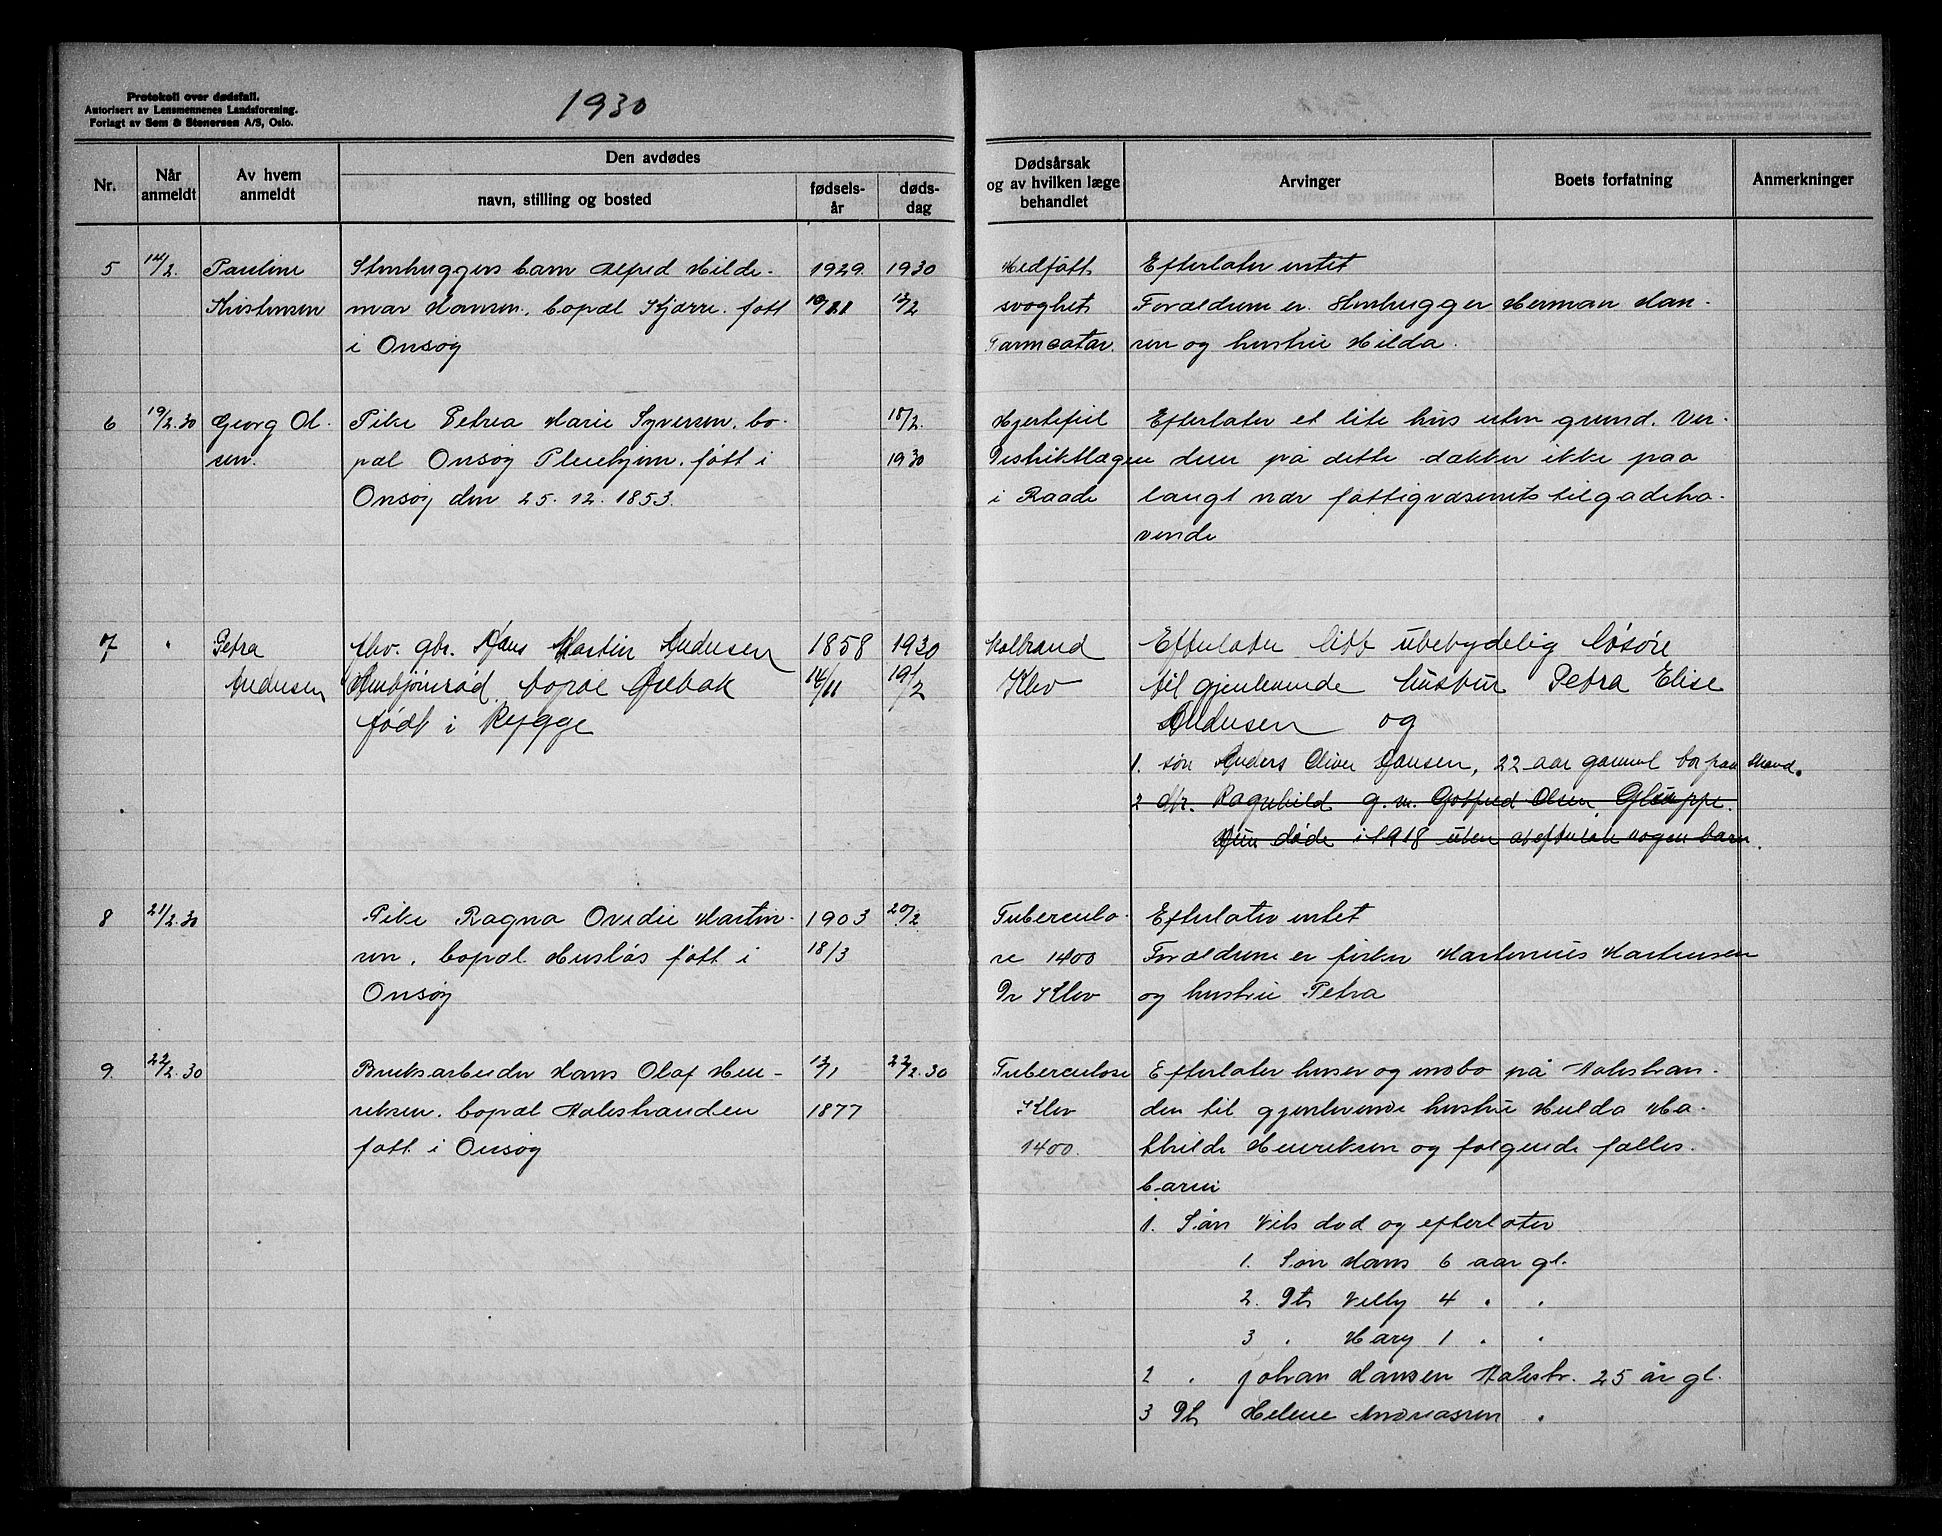 Protokoll over dødsfall.
Autorisert av Lensmennenes Landsforening.
Forlagt av Sem & Stenersen A/S, Oslo.
1930
Nr.
Når anmeldt
Av hvem anmeldt
Den avdødes
navn, stilling og bosted
fødsels-år
døds-dag
Dødsårsak og av hvilken læge behandlet
Arvinger
Boets forfatning
Anmerkninger
5 14/2. Pauline Stenhuggers barn Alfred Hilde- 1929 1930 Medfødt Efterlater intet
Kristensen mar Hansen, bopæl Kjærre. født /11 13/2 svaghet Forældrene er Stenhugger Herman Han-
i Onsøy Tarmcatar. sen og hustru Hilda.
6 19/2.30 Georg Ol- Pike Petrea Marie Syversen, bo- 18/2. Hjertefeil Efterlater et lite hus uten grund. Ver-
sen. pæl Onsøy Pleiehjem. født i 1930 Distriktlægen dien på dette dækker ikke paa
Onsøy den 25.12.1853. i Raade langt nær fattigvæsenets tilgodeha-
vende
7 " Petra fhv. gbr. Hans Martin Andersen 1858 1930 Kolbrand Efterlater litt ubetydelig løsøre
Andersen bopæl Ørebæk 14/11 19/2 Klev til gjenlevende hustru Petra Elise
født i Rygge Andersen og
1. søn Anders Oliver Hansen, 22 aar gammel bor paa
2 dtr. Ragnhild g. m. Gotfred Olsen, Glemmpe.
Hun døde i 1918 uten at efterlate nogen barn.
8 21/2.30 Pike Ragna Ovidie Martin- 1903 20/2 Tuberculo- Efterlater intet
sen, bopæl Husløs født i 18/3 se 1400 Forældrene er fisker Martinius Martinsen
Onsøy Dr Klev og hustru Petra
9. 22/2.30 Bruksarbeider Hans Olaf Hen- 13/1 22/2.30 Tuberculose Efterlater huser og innbo på Aalestran-
riksen. bopæl Aalestranden 1877 Klev den til gjenlevende hustru Hulda Ma-
født i Onsøy 1400. thilde Henriksen og følgende fælles-
barn
1. Søn Nils død og efterlater
1. Søn Hans 6 aar gl.
2. Dtr Villy 4 " "
3 " Mary 1 " "
2 " Johan Hansen Aalestr. 25 år gl.
3 Dtr Helene Andreassen "